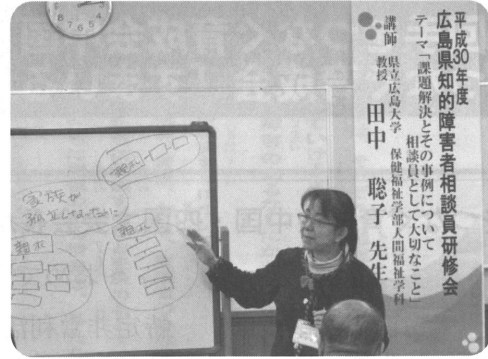 平成30年度
広島県知的障害者相談員研修会
テーマ「課題解決とその事例について
相談員として大切なこと」
講師 県立広島大学 保健福祉学部人間福祉学科
教授 田中 聡子 先生
家族が
親亡
8
7
6
5
4